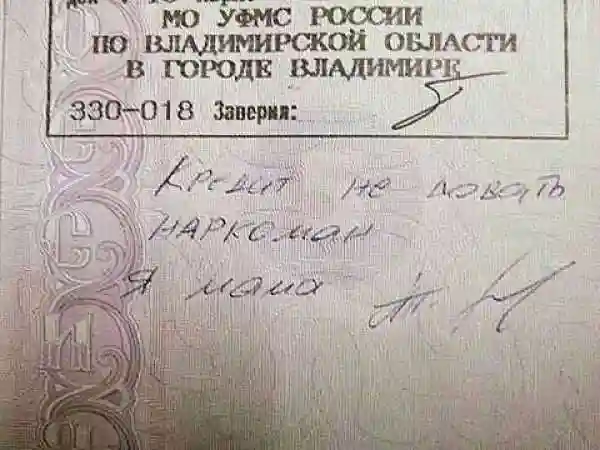 МО УФМС РОССИИ
ПО ВЛАДИМИРСКОЙ ОБЛАСТИ
В ГОРОДЕ ВЛАДИМИРЕ
330-018 Заверил:
Кредит не довать
НАРКОМАН
Я мама